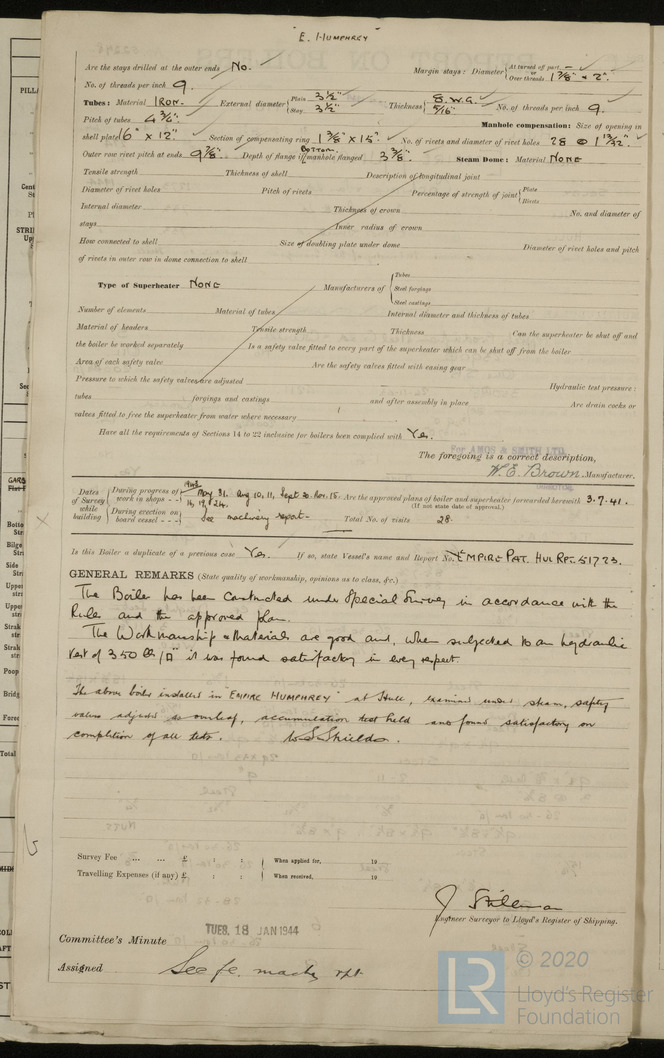 "E. HUMPHREY"
Are the stays drilled at the outer ends No. Margin stays: Diameter { At turned off part, or Over threads 1 7/8" & 2".
No. of threads per inch 9.
Tubes: Material IRON. External diameter { Plain 3 1/2" Stay 3 1/2" Thickness { 8. W.G. 5/16" No. of threads per inch 9.
Pitch of tubes Manhole compensation: Size of opening in
shell plate 16" x 12". Section of compensating ring No. of rivets and diameter of rivet holes 28 @
Outer row rivet pitch at ends 9 7/8". Depth of flange if manhole flanged Bottom 3 3/8". Steam Dome: Material NONE
Tensile strength Thickness of shell Description of longitudinal joint
Diameter of rivet holes Pitch of rivets Percentage of strength of joint { Plate Rivets
Internal diameter Thickness of crown No. and diameter of
stays Inner radius of crown
How connected to shell Size of doubling plate under dome Diameter of rivet holes and pitch
of rivets in outer row in dome connection to shell
Type of Superheater NONE Manufacturers of { Tubes Steel forgings Steel castings
Number of elements Material of tubes Internal diameter and thickness of tubes
Material of headers Tensile strength Thickness Can the superheater be shut off and
the boiler be worked separately Is a safety valve fitted to every part of the superheater which can be shut off from the boiler
Area of each safety valve Are the safety valves fitted with easing gear
Pressure to which the safety valves are adjusted Hydraulic test pressure:
tubes forgings and castings and after assembly in place Are drain cocks or
valves fitted to free the superheater from water where necessary
Have all the requirements of Sections 14 to 22 inclusive for boilers been complied with Yes.
For AMOS & SMITH LTD.
The foregoing is a correct description,
W. E. Brown Manufacturer.
DIRECTOR
Dates of Survey while building { During progress of work in shops - - 1943 May 31. Aug 10, 11, Sept 30. Nov. 15. Are the approved plans of boiler and superheater forwarded herewith 3.7.41.
(If not state date of approval.)
During erection on board vessel - - - See machinery report. Total No. of visits 28.
Is this Boiler a duplicate of a previous case Yes. If so, state Vessel's name and Report No. EMPIRE PAT. HUL RPT. 51723.
GENERAL REMARKS (State quality of workmanship, opinions as to class, &c.)
The Boiler has been constructed under Special Survey in accordance with the
Rules and the approved plan.
The Workmanship & materials are good and, when subjected to an hydraulic
test of 350 lbs/□" it was found satisfactory in every respect.
The above boiler installed in "EMPIRE HUMPHREY" at Hull, examined under steam, safety
valves adjusted as overleaf, accumulation test held and found satisfactory on
completion of all tests. W S Shields.
Survey Fee ... ... £ : : When applied for, 19
Travelling Expenses (if any) £ : : When received, 19
J Stillman
Engineer Surveyor to Lloyd's Register of Shipping.
TUES. 18 JAN 1944
Committee's Minute
Assigned See fe. machy rpt
© 2020
LR
Lloyd's Register
Foundation